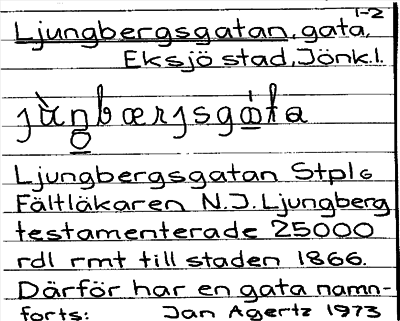 1-2
Ljungbergsgatan, gata,
Eksjö stad, Jönk.l.
Ljungbergsgatan Stpl 6
Fältläkaren N.J. Ljungberg
testamenterade 25000
rdl rmt till staden 1866.
Därför har en gata namn-
forts: Jan Agertz 1973